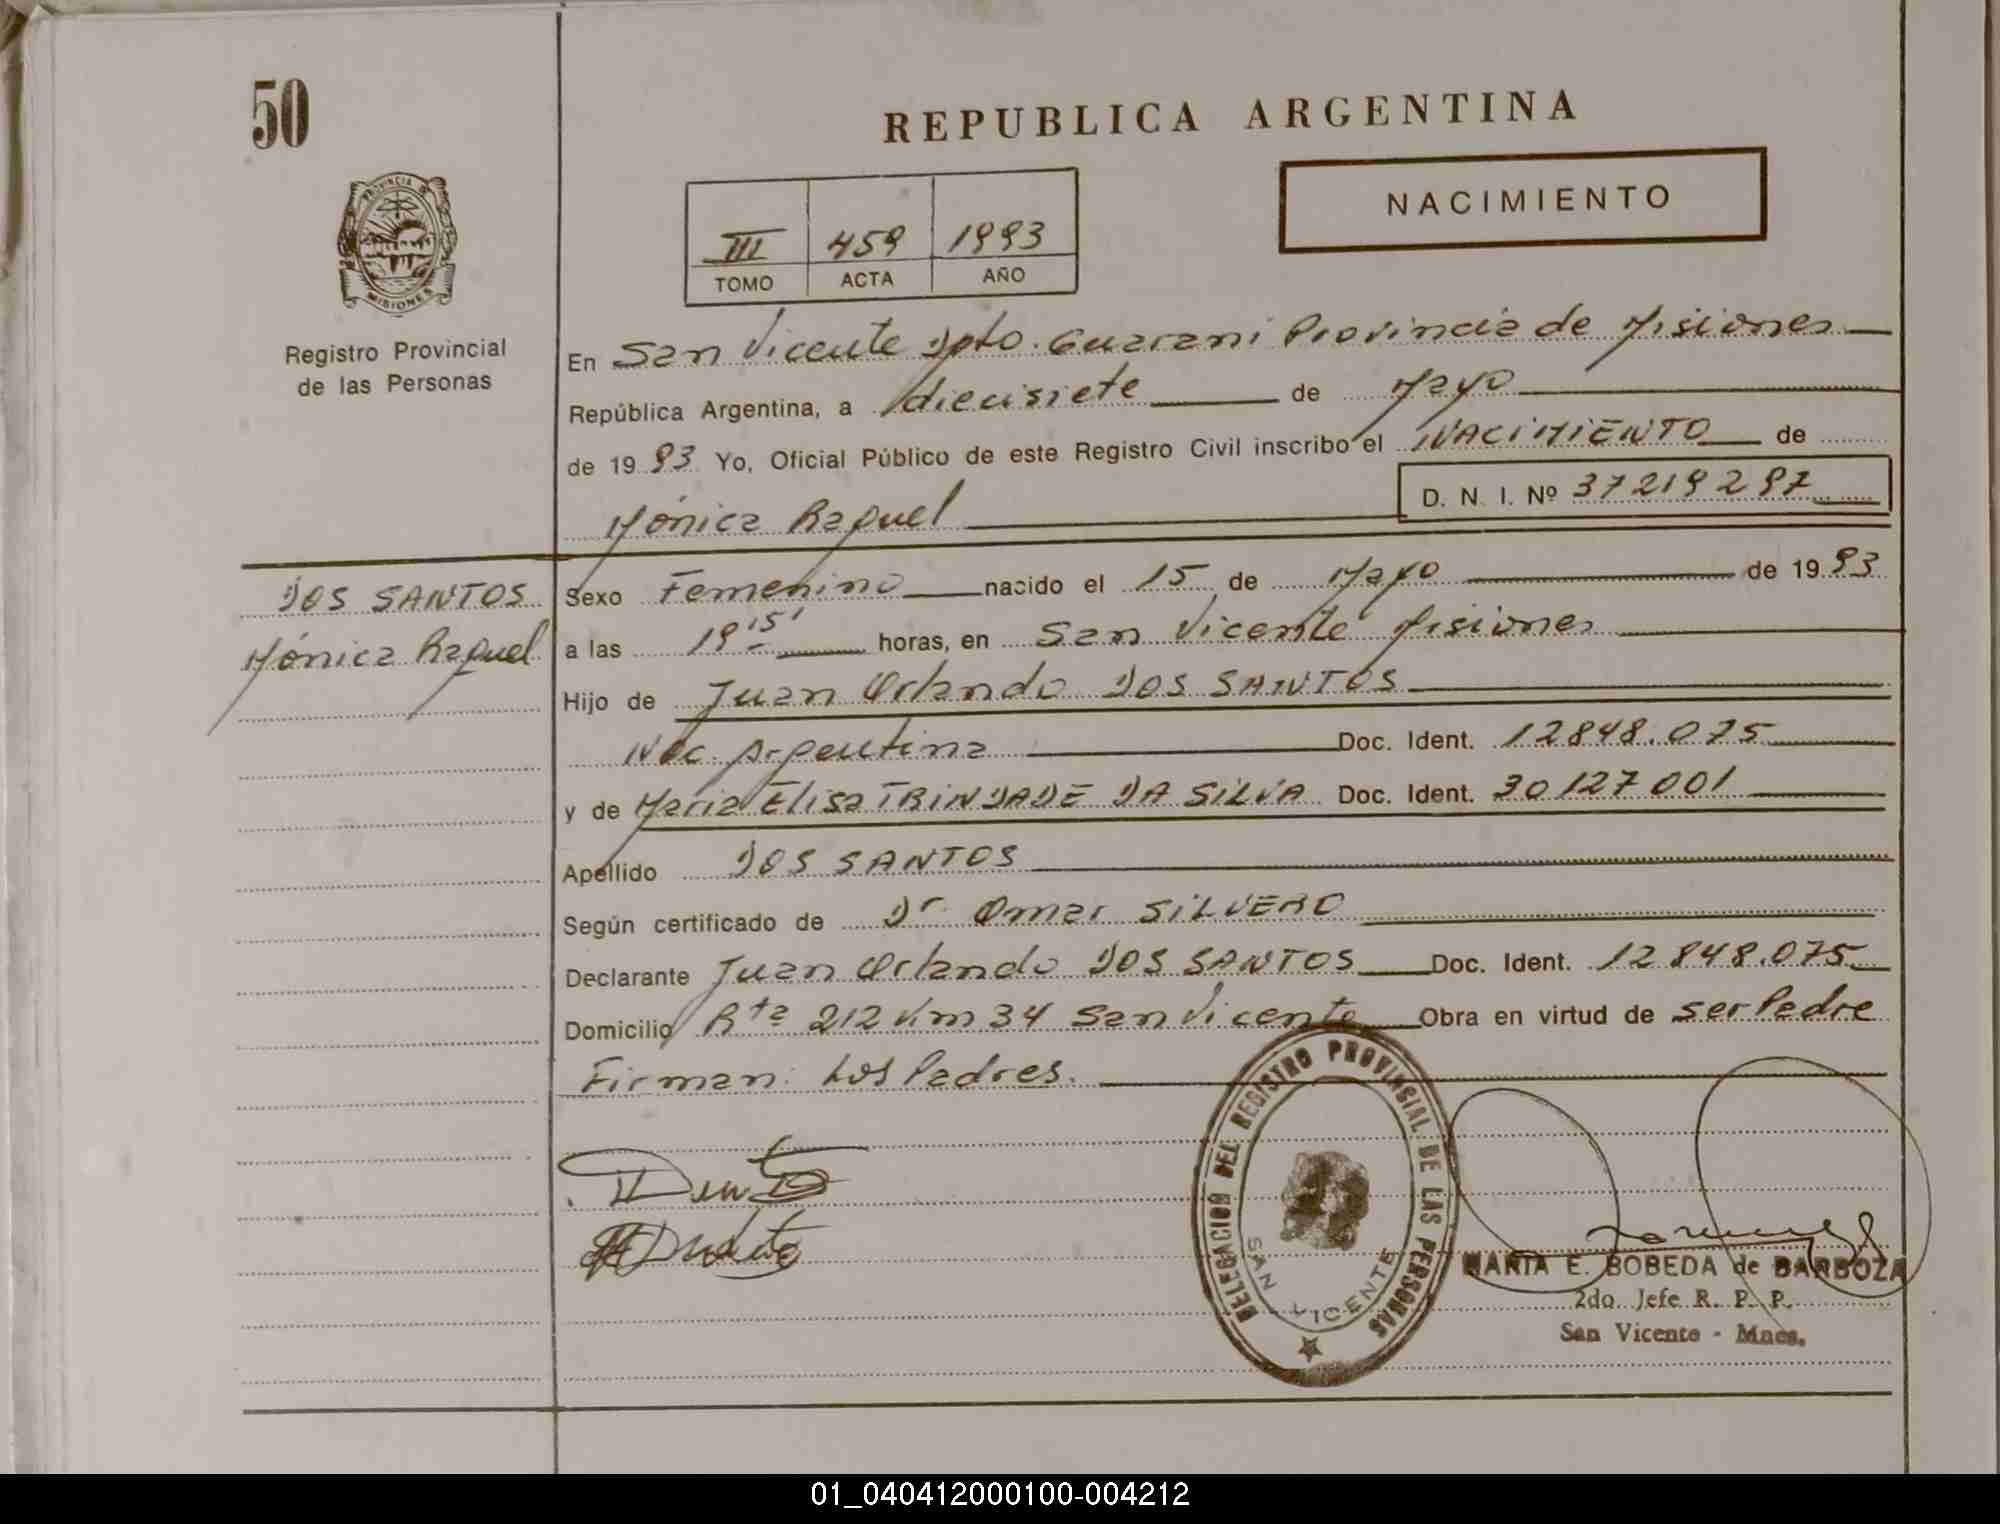 50
REPUBLICA ARGENTINA
NACIMIENTO
III 459 1993
TOMO ACTA AÑO
PROVINCIA DE MISIONES
Registro Provincial
de las Personas
En San Vicente Dpto. Guarani Provincia de Misiones
República Argentina, a diecisiete de Mayo
de 1993 Yo, Oficial Público de este Registro Civil inscribo el NACIMIENTO de
Mónica Raquel D. N. I. Nº 37219297
DOS SANTOS
Mónica Raquel
Sexo Femenino nacido el 15 de Mayo de 1993
a las 19 15' horas, en San Vicente Misiones
Hijo de Juan Orlando DOS SANTOS
Nac. Argentina Doc. Ident. 12848.075
y de Maria Elisa TRINDADE DA SILVA Doc. Ident. 30127001
Apellido DOS SANTOS
Según certificado de Dr Omar SILVERO
Declarante Juan Orlando DOS SANTOS Doc. Ident. 12848.075
Domicilio Rta 212 Km 34 San Vicente Obra en virtud de ser Padre
Firman: Los Padres.
DELEGACION DEL REGISTRO PROVINCIAL DE LAS PERSONAS
SAN VICENTE
MARIA E. BOBEDA de BARBOZA
2do. Jefe R. P. P.
San Vicente - Mnes.
01_040412000100-004212